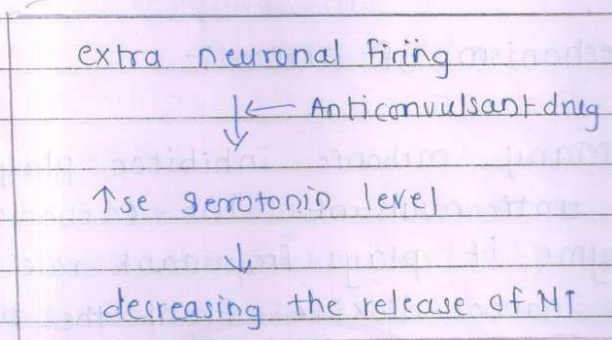 extra neuronal firing
Anticonvulsant drug
↑se serotonin level
decreasing the release of NT